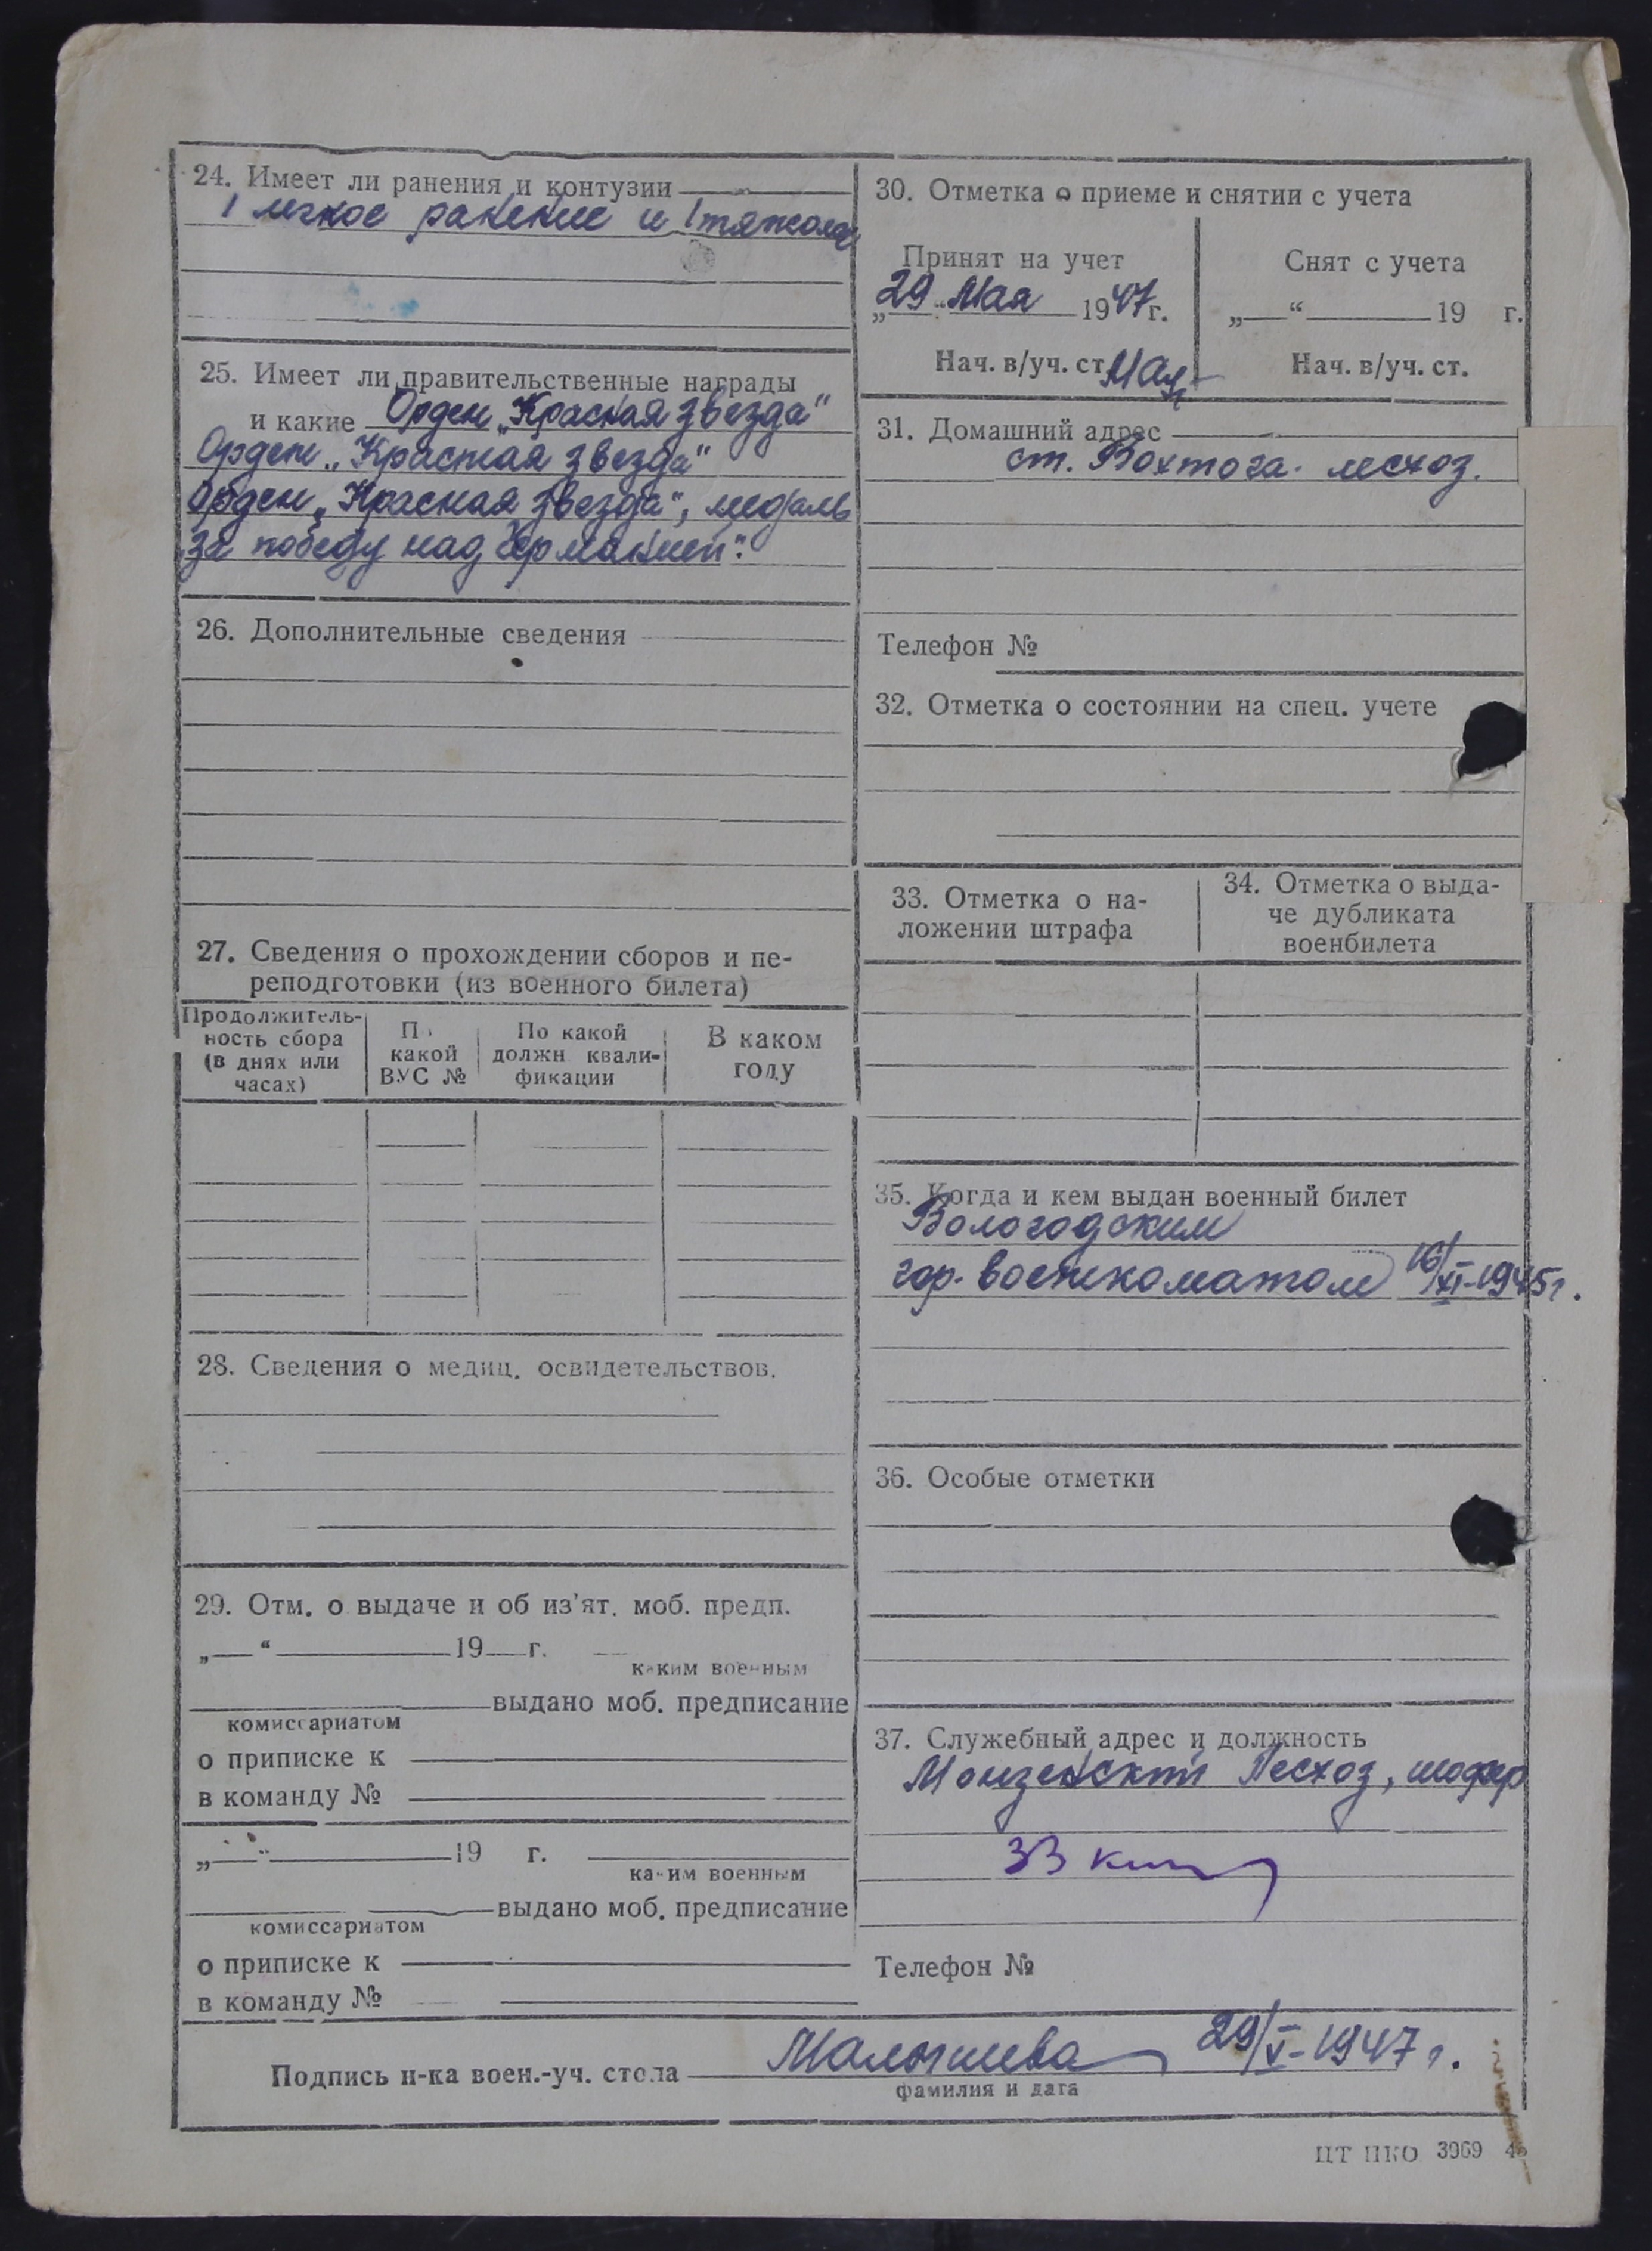 24. Имеет ли ранения и контузии
1 легкое ранение и 1 тяжолое
25. Имеет ли правительственные награды
и какие Орден „Красная звезда"
Орден „Красная звезда"
Орден „Красная звезда", медаль
„За победу над Германией".
26. Дополнительные сведения
27. Сведения о прохождении сборов и пе-
реподготовки (из военного билета)
Продолжитель-
ность сбора
(в днях или
часах)
По
какой
ВУС №
По какой
должн. квали-
фикации
В каком
году
28. Сведения о медиц. освидетельствов.
29. Отм. о выдаче и об из'ят. моб. предп.
„ " 19 г.
каким военным
выдано моб. предписание
комиссариатом
о приписке к
в команду №
„ " 19 г.
каким военным
выдано моб. предписание
комиссариатом
о приписке к
в команду №
30. Отметка о приеме и снятии с учета
Принят на учет
„29" Мая 1947 г.
Нач. в/уч. ст.
Снят с учета
„ " 19 г.
Нач. в/уч. ст.
31. Домашний адрес
ст. Вохтога. лесхоз.
Телефон №
32. Отметка о состоянии на спец. учете
33. Отметка о на-
ложении штрафа
34. Отметка о выда-
че дубликата
военбилета
35. Когда и кем выдан военный билет
Вологодским
гор. военкоматом 16/XI-1945 г.
36. Особые отметки
37. Служебный адрес и должность
Монзенский Лесхоз, шофер
Телефон №
Подпись н-ка воен.-уч. стола Малышева 29/V-1947 г.
фамилия и дата
ЦТ ПКО 3969